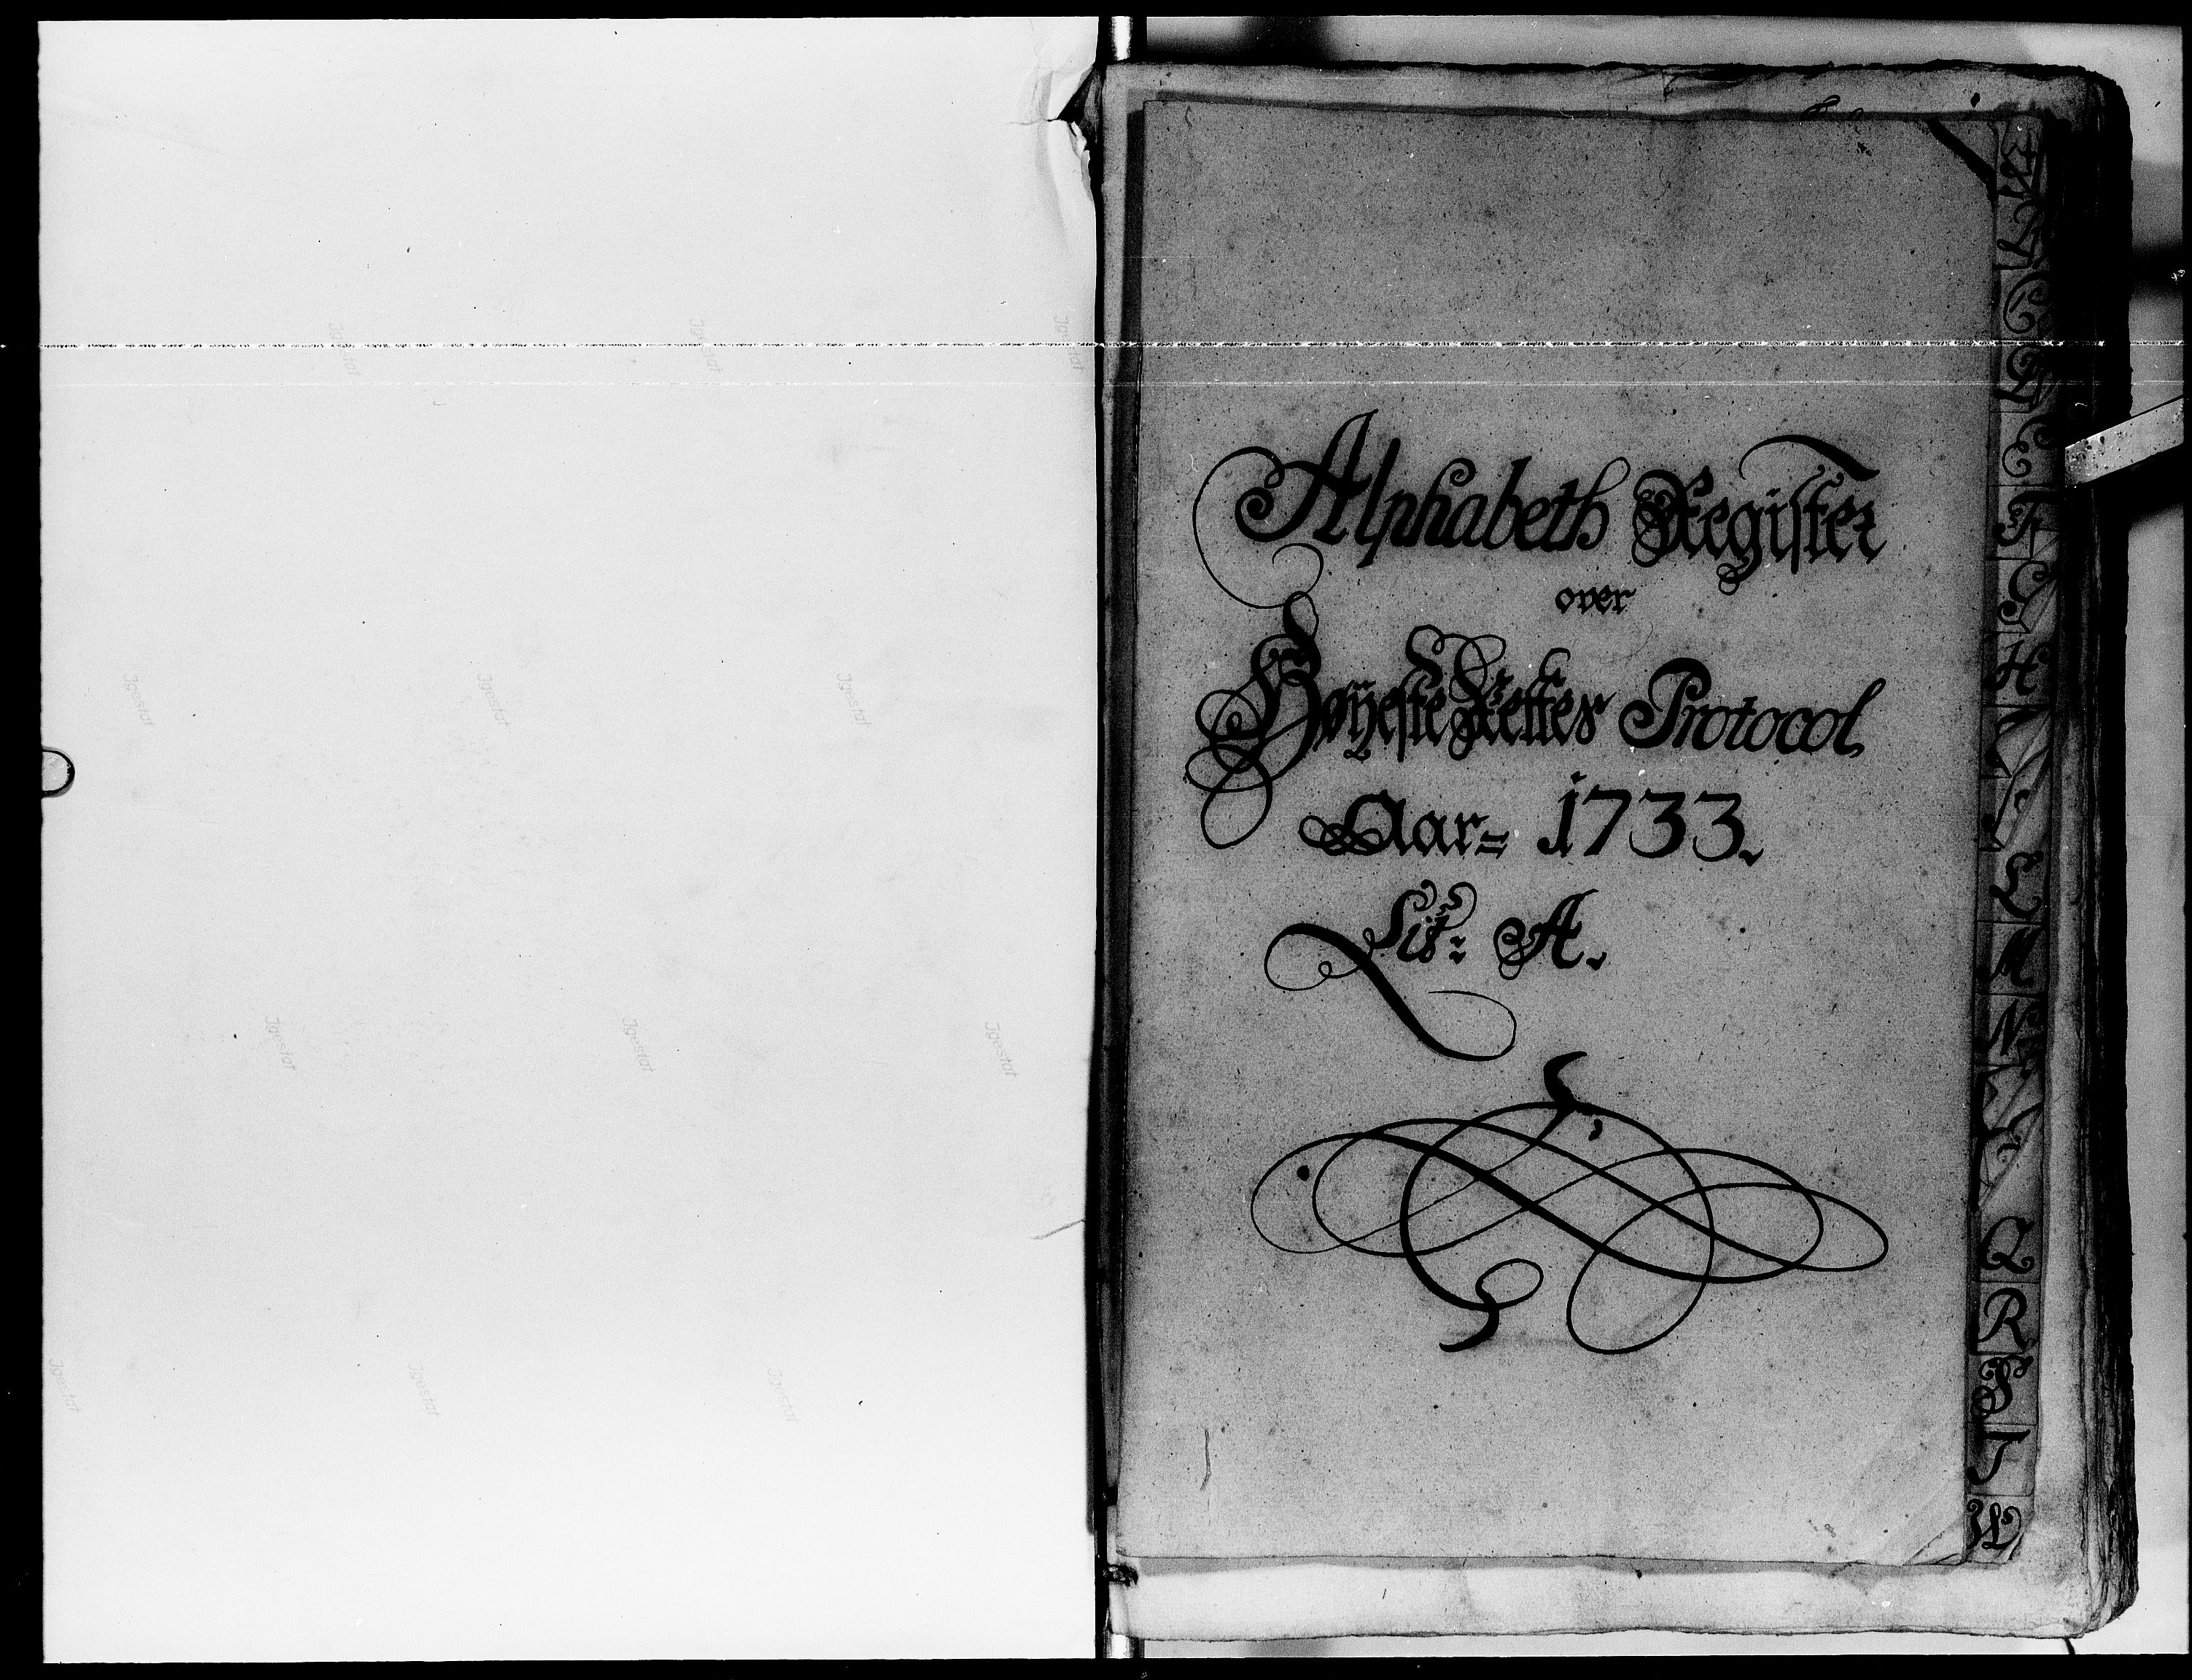 Alphabeth Register
over
Høÿeste Rettes Protocol
Aar= 1733.
Lit: A.
Q
R
S
T